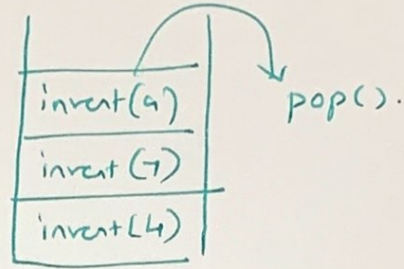 invert(9)
pop().
invert(7)
invert(4)